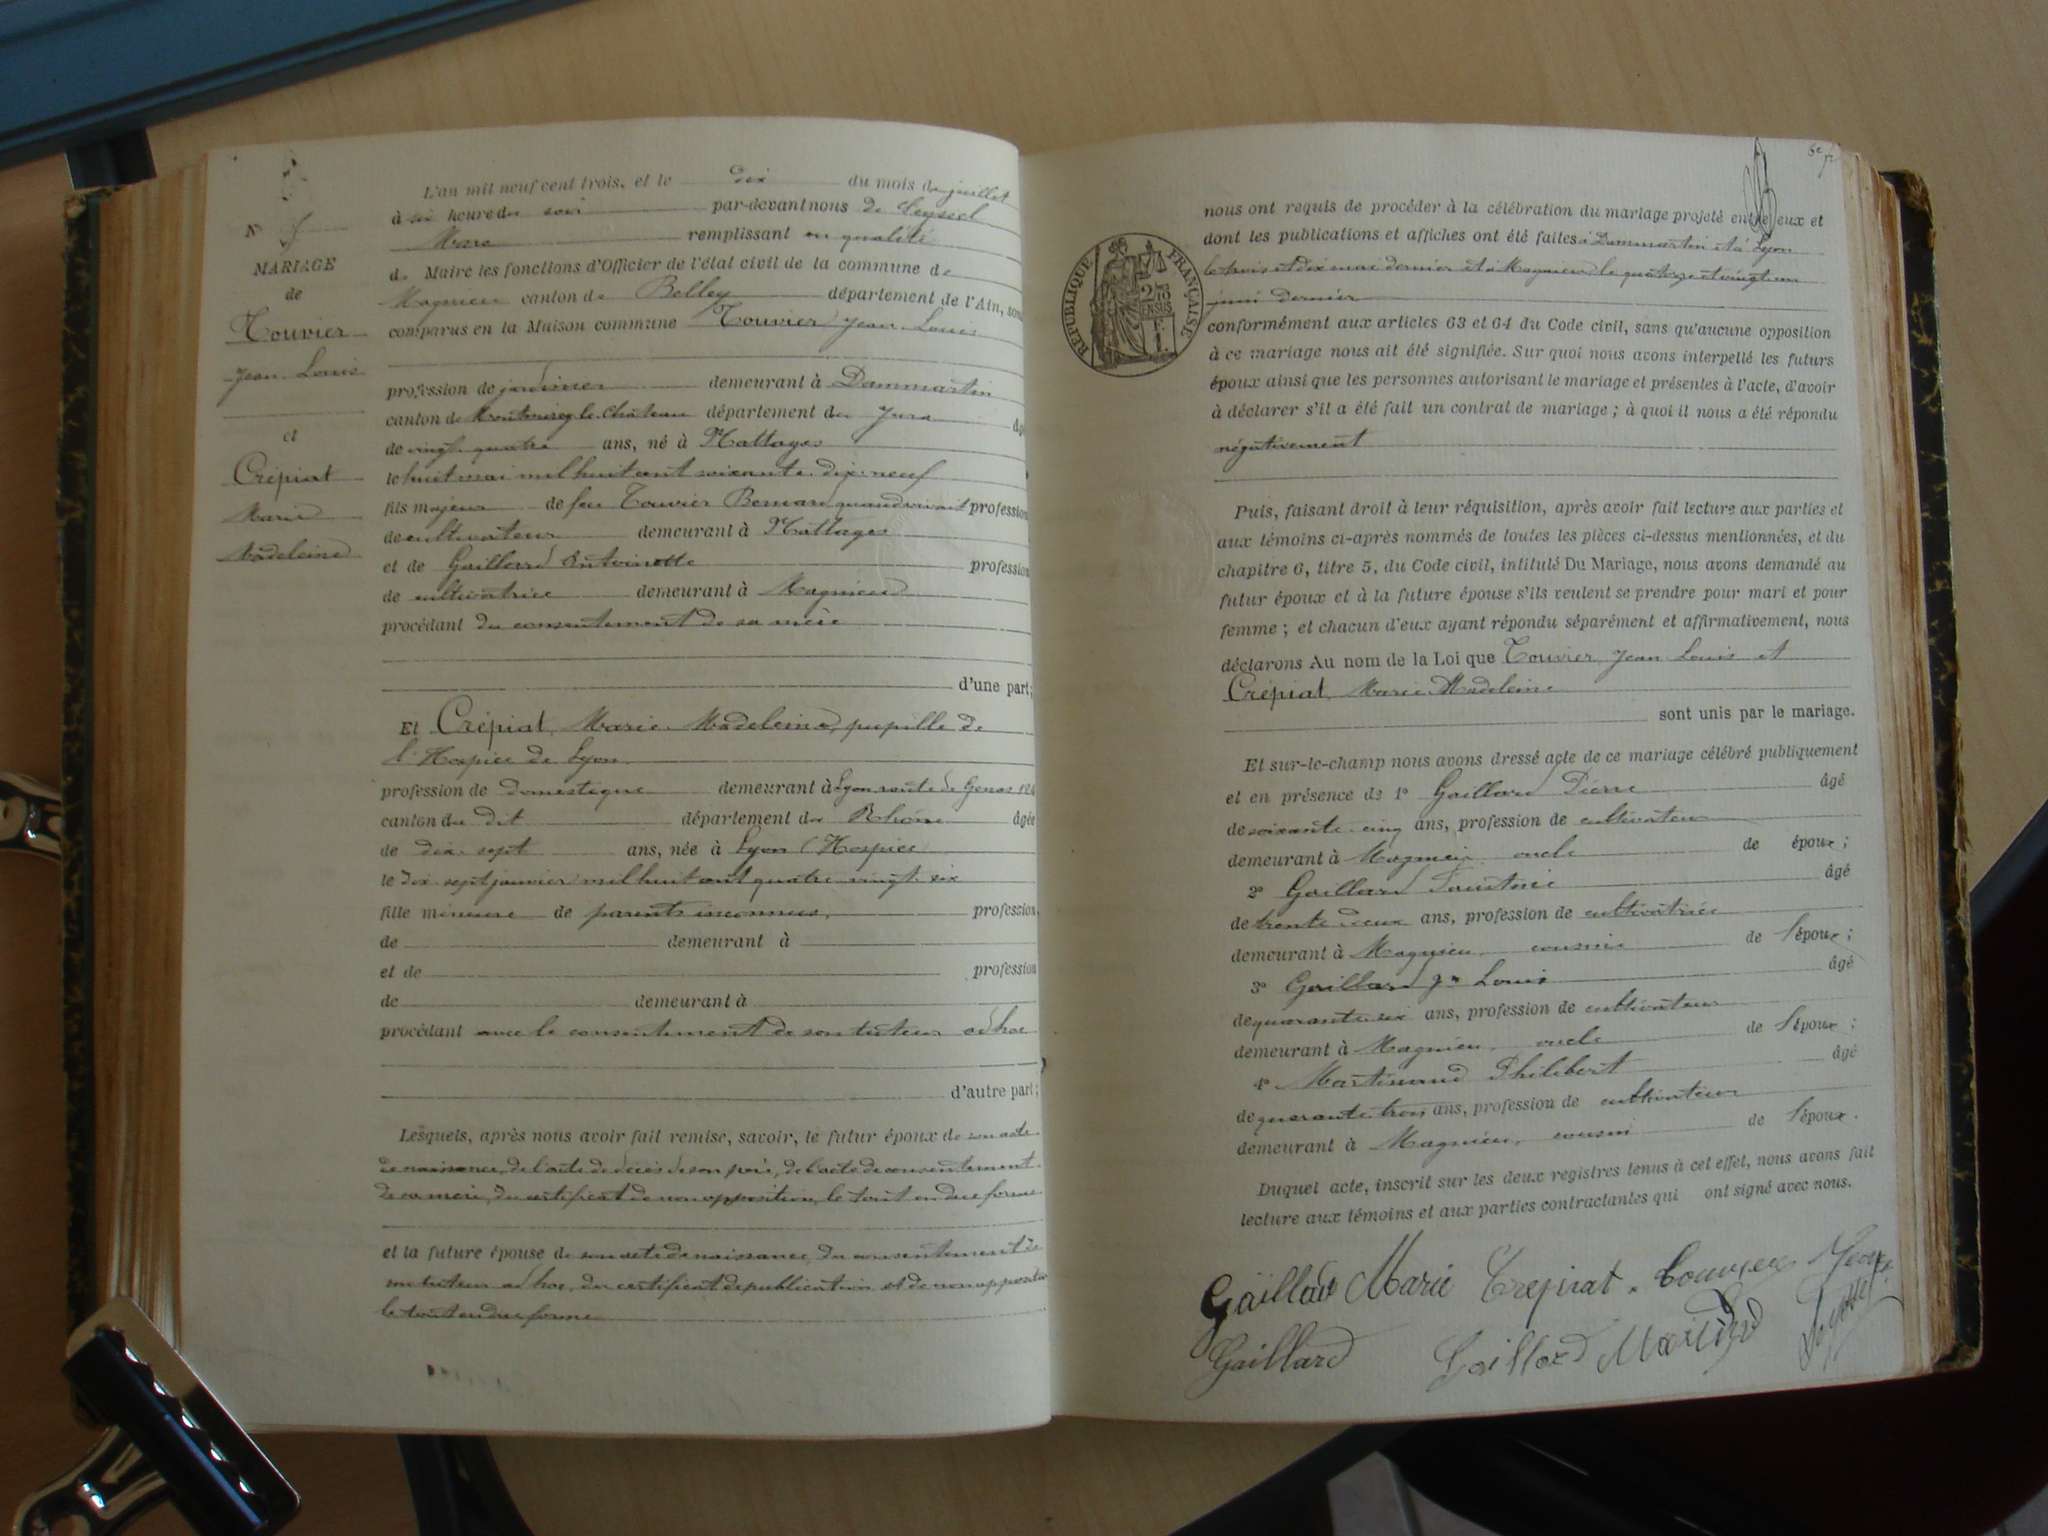 L'an mil neuf cent trois, et le dix du mois de juillet
à six heures du soir par-devant nous de Seyssel
Marc remplissant en qualité
de Maire les fonctions d'Officier de l'état civil de la commune de
Magnieu canton de Belley département de l'Ain, sont
comparus en la Maison commune Touvier Jean Louis
profession de jardinier demeurant à Dammartin
canton de Montmirey le Château département du Jura âgé
de vingt quatre ans, né à Nattages
le huit mai mil huit cent soixante dix-neuf
fils majeur de feu Touvier Bernard quand vivait profession
de cultivateur demeurant à Nattages
et de Gaillard Antoinette profession
de cultivatrice demeurant à Magnieu
procédant du consentement de sa mère
d'une part;
Et Crépiat Marie Madeleine, pupille de
l'Hospice de Lyon
profession de domestique demeurant à Lyon route de Genas
canton du dit département du Rhône âgée
de dix-sept ans, née à Lyon (Hospice)
le dix sept janvier mil huit cent quatre vingt six
fille mineure de parents inconnus, profession
de demeurant à
et de profession
de demeurant à
procédant avec le consentement de son tuteur ad hoc
d'autre part;
Lesquels, après nous avoir fait remise, savoir, le futur époux de son acte
de naissance, de l'acte de décès de son père, de l'acte de consentement
de sa mère, du certificat de non opposition, le tout en due forme
et la future épouse de son acte de naissance, du consentement de
son tuteur ad hoc, du certificat de publication et de non opposition
le tout en due forme
N°
MARIAGE
de
Touvier
Jean Louis
et
Crépiat
Marie
Madeleine
nous ont requis de procéder à la célébration du mariage projeté entre eux et
dont les publications et affiches ont été faites à Dammartin et à Lyon
le trois et dix mai dernier et à Magnieu le quatorze et vingt un
juin dernier
conformément aux articles 63 et 64 du Code civil, sans qu'aucune opposition
à ce mariage nous ait été signifiée. Sur quoi nous avons interpellé les futurs
époux ainsi que les personnes autorisant le mariage et présentes à l'acte, d'avoir
à déclarer s'il a été fait un contrat de mariage ; à quoi il nous a été répondu
négativement
Puis, faisant droit à leur réquisition, après avoir fait lecture aux parties et
aux témoins ci-après nommés de toutes les pièces ci-dessus mentionnées, et du
chapitre 6, titre 5, du Code civil, intitulé Du Mariage, nous avons demandé au
futur époux et à la future épouse s'ils veulent se prendre pour mari et pour
femme ; et chacun d'eux ayant répondu séparément et affirmativement, nous
déclarons Au nom de la Loi que Touvier Jean Louis et
Crépiat Marie Madeleine
sont unis par le mariage.
Et sur-le-champ nous avons dressé acte de ce mariage célébré publiquement
et en présence de 1° Gaillard Pierre âgé
de soixante-cinq ans, profession de cultivateur
demeurant à Magnieu oncle de époux ;
2° Gaillard âgé
de trente deux ans, profession de cultivatrice
demeurant à Magnieu cousine de l'époux ;
3° Gaillard Jn Louis âgé
de quarante-six ans, profession de cultivateur
demeurant à Magnieu, oncle de l'époux ;
4° Martinand Philibert âgé
de quarante trois ans, profession de cultivateur
demeurant à Magnieu, cousin de l'époux.
Duquel acte, inscrit sur les deux registres tenus à cet effet, nous avons fait
lecture aux témoins et aux parties contractantes qui ont signé avec nous.
Gaillard Marie Crépiat. Touvier
Gaillard Gaillard
RÉPUBLIQUE FRANÇAISE
2/10 EN SUS
1 F.